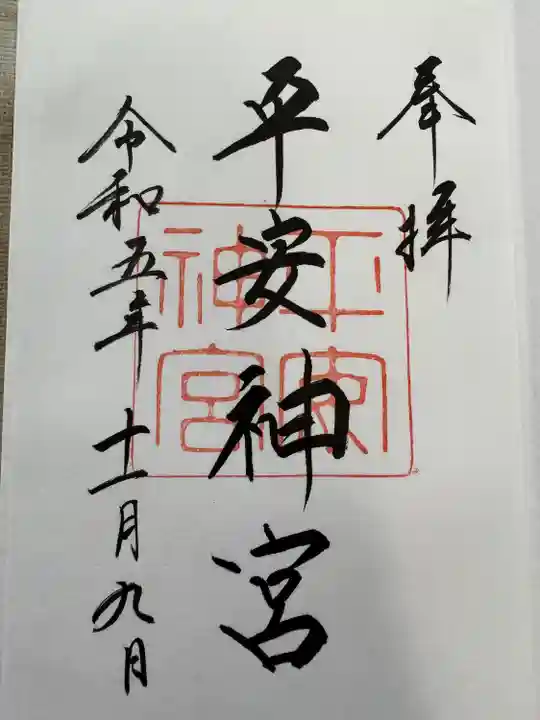 奉拝
平安神宮
平安神宮
令和五年十一月九日